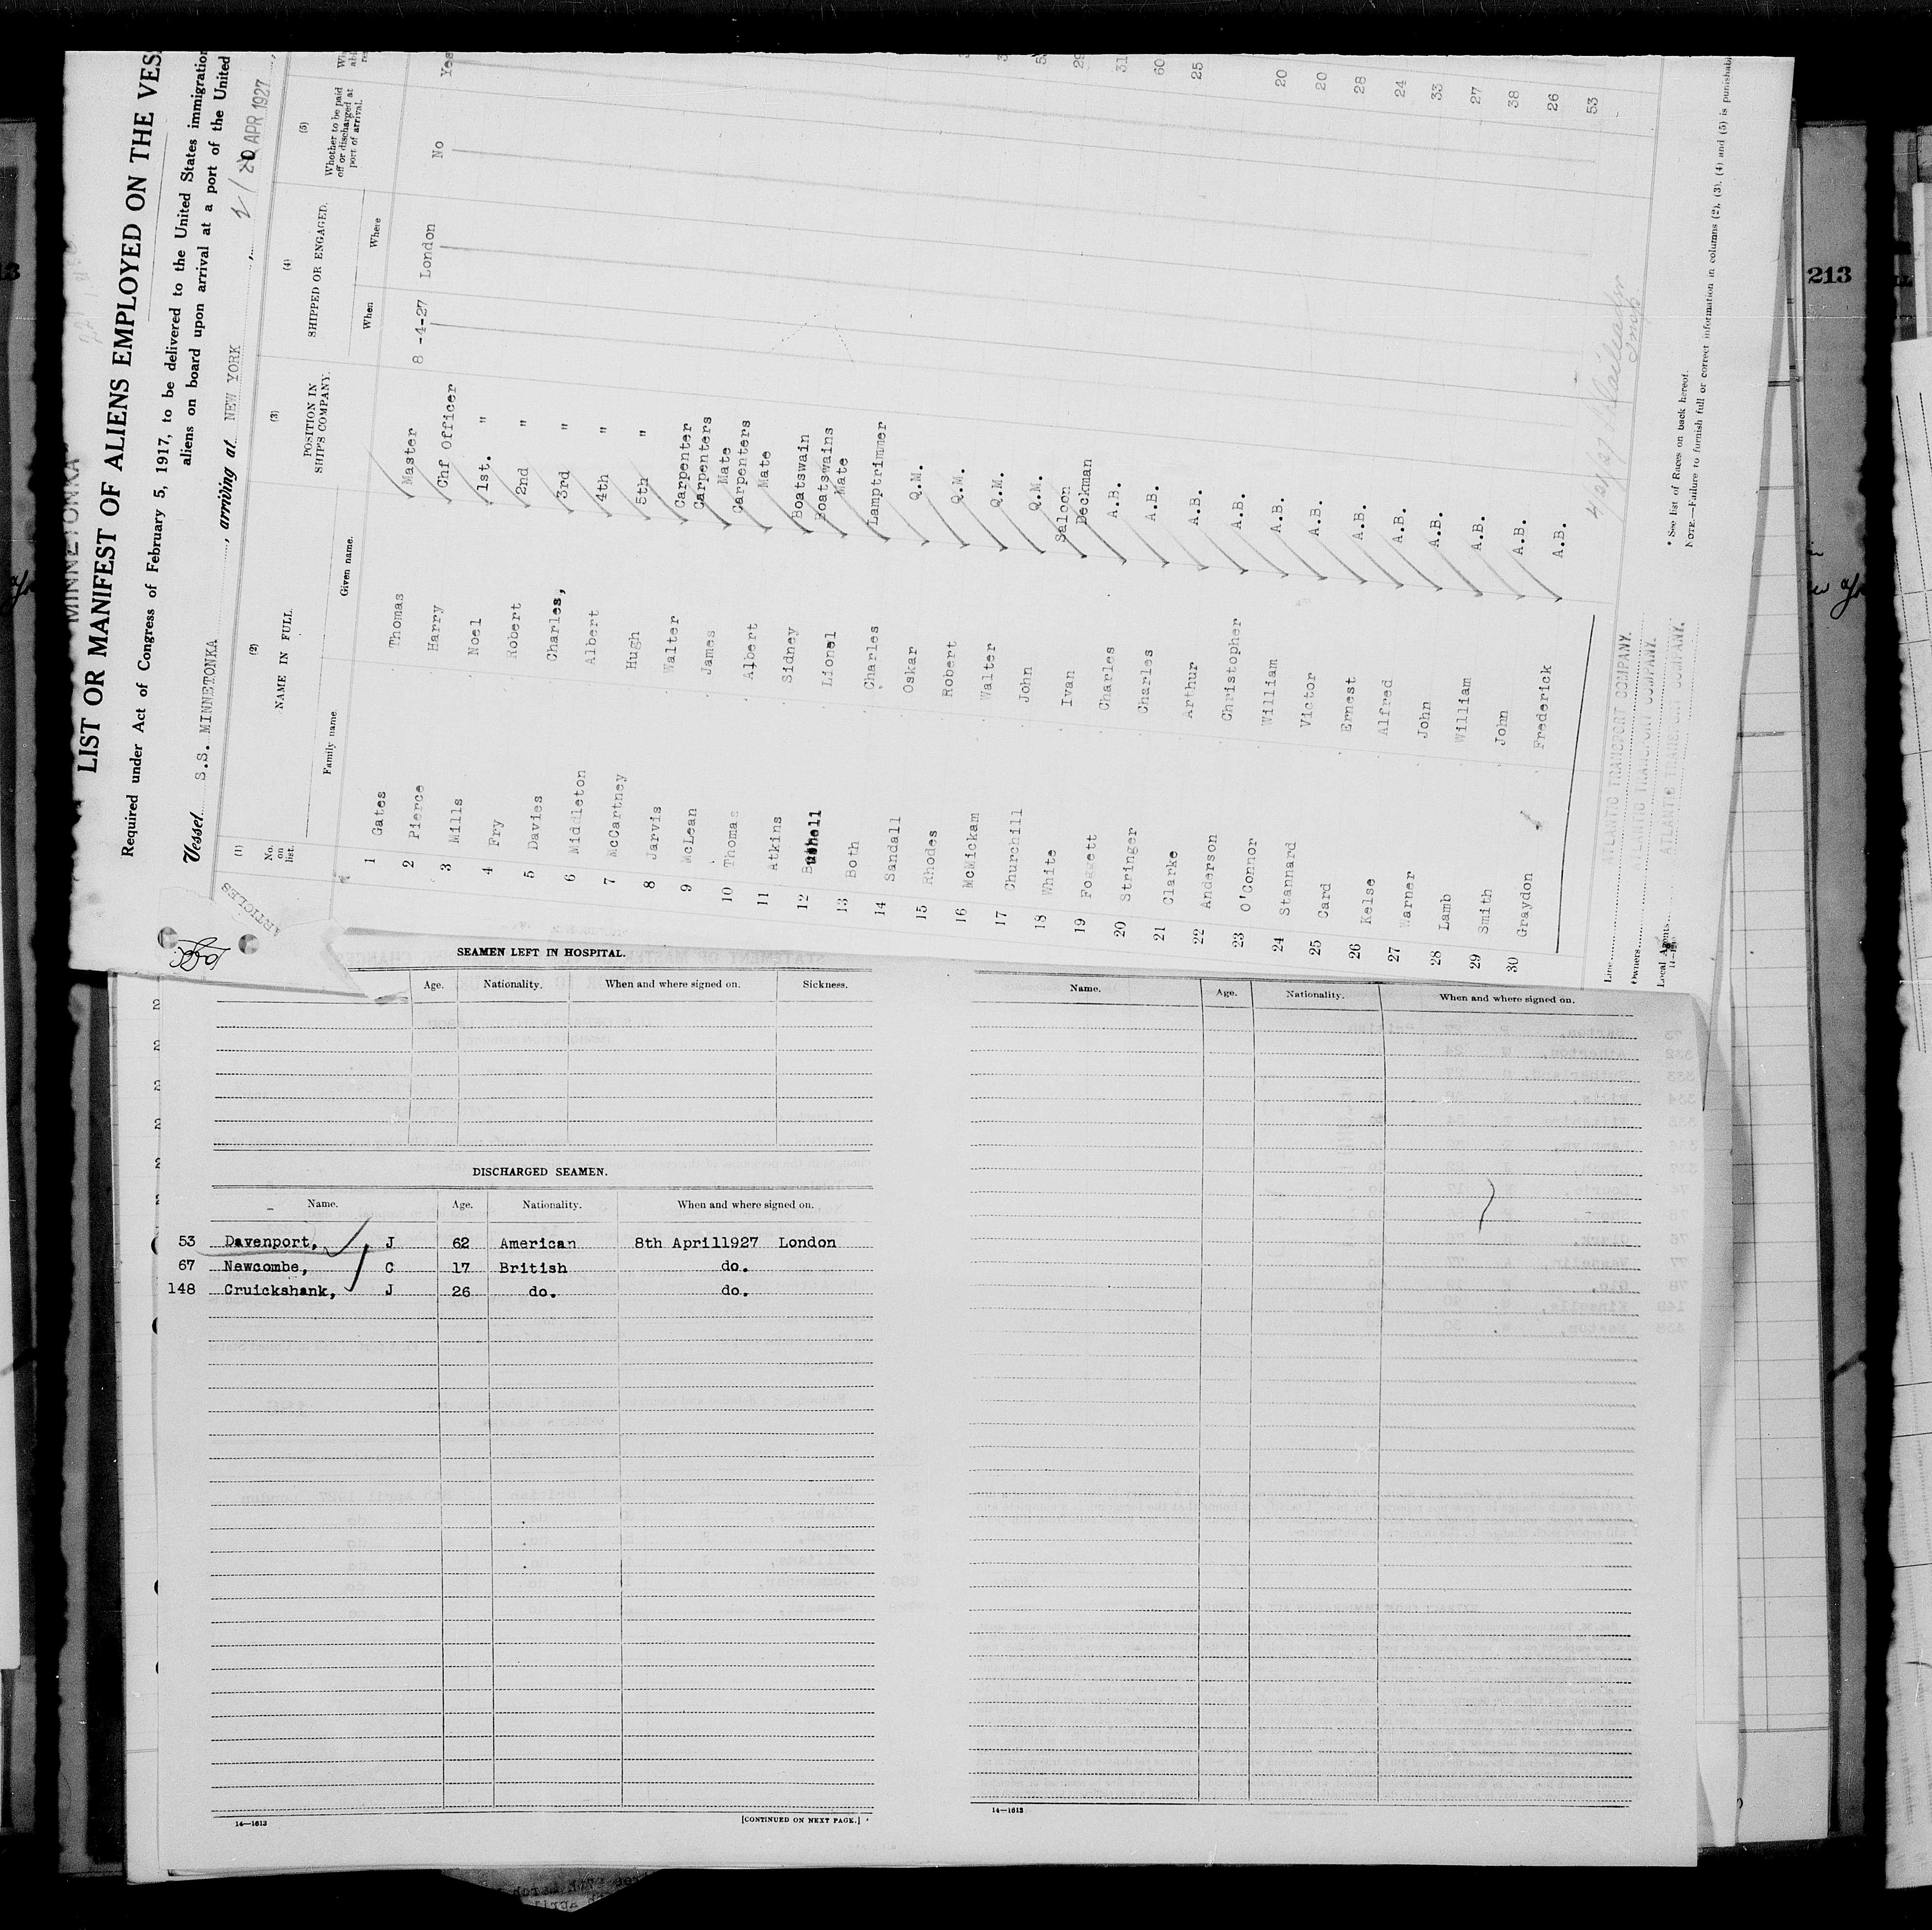 MINNETONKA
LIST OR MANIFEST OF ALIENS EMPLOYED ON THE VES
Required under Act of Congress of February 5, 1917, to be delivered to the United States immigration
aliens on board upon arrival at a port of the United
Vessel S.S. MINNETONKA, arriving at NEW YORK, 20 APR 1927
(1) (2) (3) (4) (5)
No. on list. NAME IN FULL. POSITION IN SHIP'S COMPANY. SHIPPED OR ENGAGED. Whether to be paid off or discharged at port of arrival.
Family name. Given name. When Where
1 Gates Thomas Master 8 -4-27 London No Yes
2 Pierce Harry Chf Officer
3 Mills Noel 1st. "
4 Fry Robert 2nd "
5 Davies Charles, 3rd "
6 Middleton Albert 4th "
7 McCartney Hugh 5th "
8 Jarvis Walter Carpenter
9 McLean James Carpenters Mate
10 Thomas Albert Carpenters Mate
11 Atkins Sidney Boatswain
12 Lionel Boatswains Mate
13 Both Charles Lamptrimmer
14 Sandall Oskar Q.M.
15 Rhodes Robert Q.M.
16 McMickam Walter Q.M.
17 Churchill John Q.M.
18 White Ivan Saloon Deckman
19 Foggett Charles A.B.
20 Stringer Charles A.B.
21 Clarke Arthur A.B.
22 Anderson Christopher A.B.
23 O'Connor William A.B.
24 Stannard Victor A.B.
25 Card Ernest A.B.
26 Kelse Alfred A.B.
27 Warner John A.B.
28 Lamb William A.B.
29 Smith John A.B.
30 Graydon Frederick A.B.
29
31
60
25
20
20
28
24
33
27
38
26
53
Line ATLANTIC TRANSPORT COMPANY.
Owners ATLANTIC TRANSPORT COMPANY.
Local Agents ATLANTIC TRANSPORT COMPANY.
* See list of Races on back hereof.
NOTE.—Failure to furnish full or correct information in columns (2), (3), (4) and (5) is punishabl
ARTICLES
213
SEAMEN LEFT IN HOSPITAL.
Age. Nationality. When and where signed on. Sickness.
DISCHARGED SEAMEN.
Name. Age. Nationality. When and where signed on.
53 Davenport, J 62 American 8th April1927 London
67 Newcombe, C 17 British do.
148 Cruickshank, J 26 do. do.
14—1613
[CONTINUED ON NEXT PAGE.]
Name. Age. Nationality. When and where signed on.
14—1613